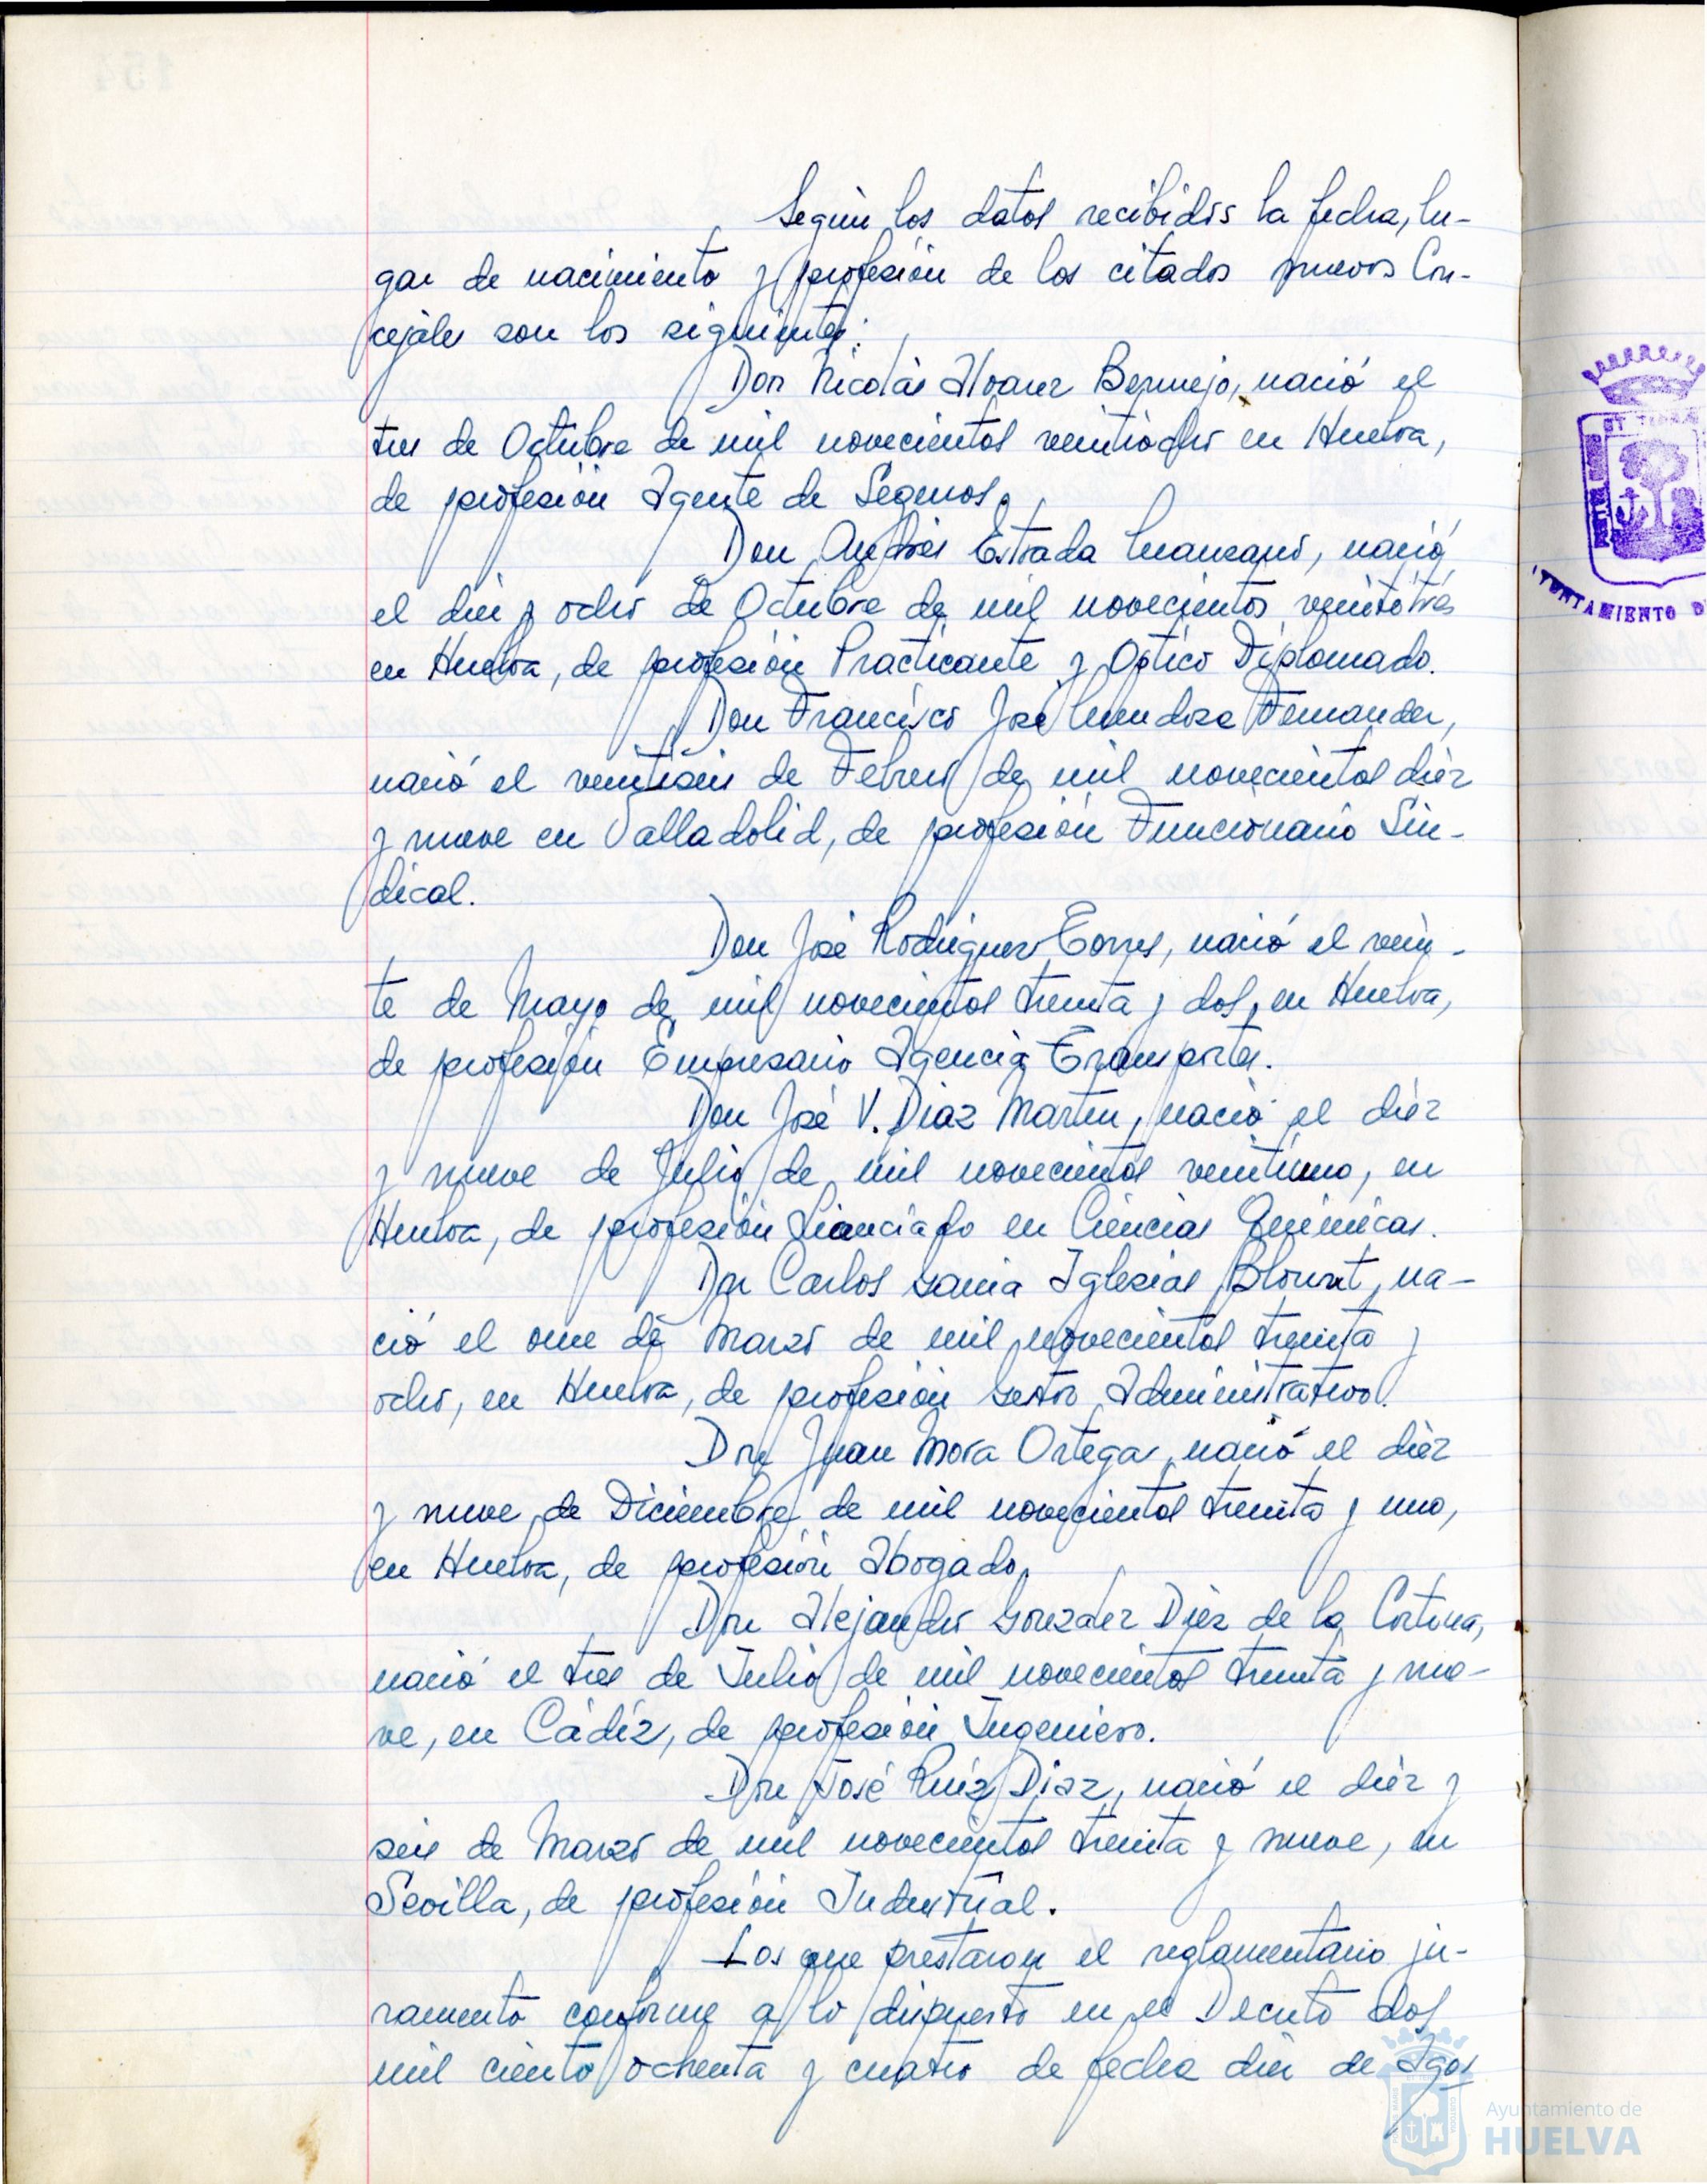 Según los datos recibidos la fecha, lu-
gar de nacimiento y profesión de los citados nuevos Con-
cejales son los siguientes:
Don Nicolás Alvarez Bermejo, nació el
tres de Octubre de mil novecientos veintiocho en Huelva,
de profesión Agente de Seguros.
Don Andrés Estrada Manzano, nació
el diez y ocho de Octubre de mil novecientos veintitrés
en Huelva, de profesión Practicante y Optico Diplomado.
Don Francisco José Mendoza Fernandez,
nació el veintiseis de Febrero de mil novecientos diez
y nueve en Valladolid, de profesión Funcionario Sin-
dical.
Don José Rodriguez Torres, nació el vein-
te de Mayo de mil novecientos treinta y dos, en Huelva,
de profesión Empresario Agencia Transportes.
Don José V. Diaz Martin, nació el diez
y nueve de Julio de mil novecientos veintiuno, en
Huelva, de profesión Licenciado en Ciencias Quimicas.
Don Carlos Garcia Iglesias Blount, na-
ció el once de Marzo de mil novecientos treinta y
ocho, en Huelva, de profesión Gestor Administrativo.
Don Juan Mora Ortega, nació el diez
y nueve de Diciembre de mil novecientos treinta y uno,
en Huelva, de profesión Abogado.
Don Alejandro Gonzalez Diez de la Cortina,
nació el tres de Julio de mil novecientos treinta y nue-
ve, en Cádiz, de profesión Ingeniero.
Don José Ruíz Diaz, nació el diez y
seis de Marzo de mil novecientos treinta y nueve, en
Sevilla, de profesión Industrial.
Los que prestaron el reglamentario ju-
ramento conforme a lo dispuesto en el Decreto dos
mil ciento ochenta y cuatro de fecha diez de Agos
AYUNTAMIENTO D
Ayuntamiento de
HUELVA